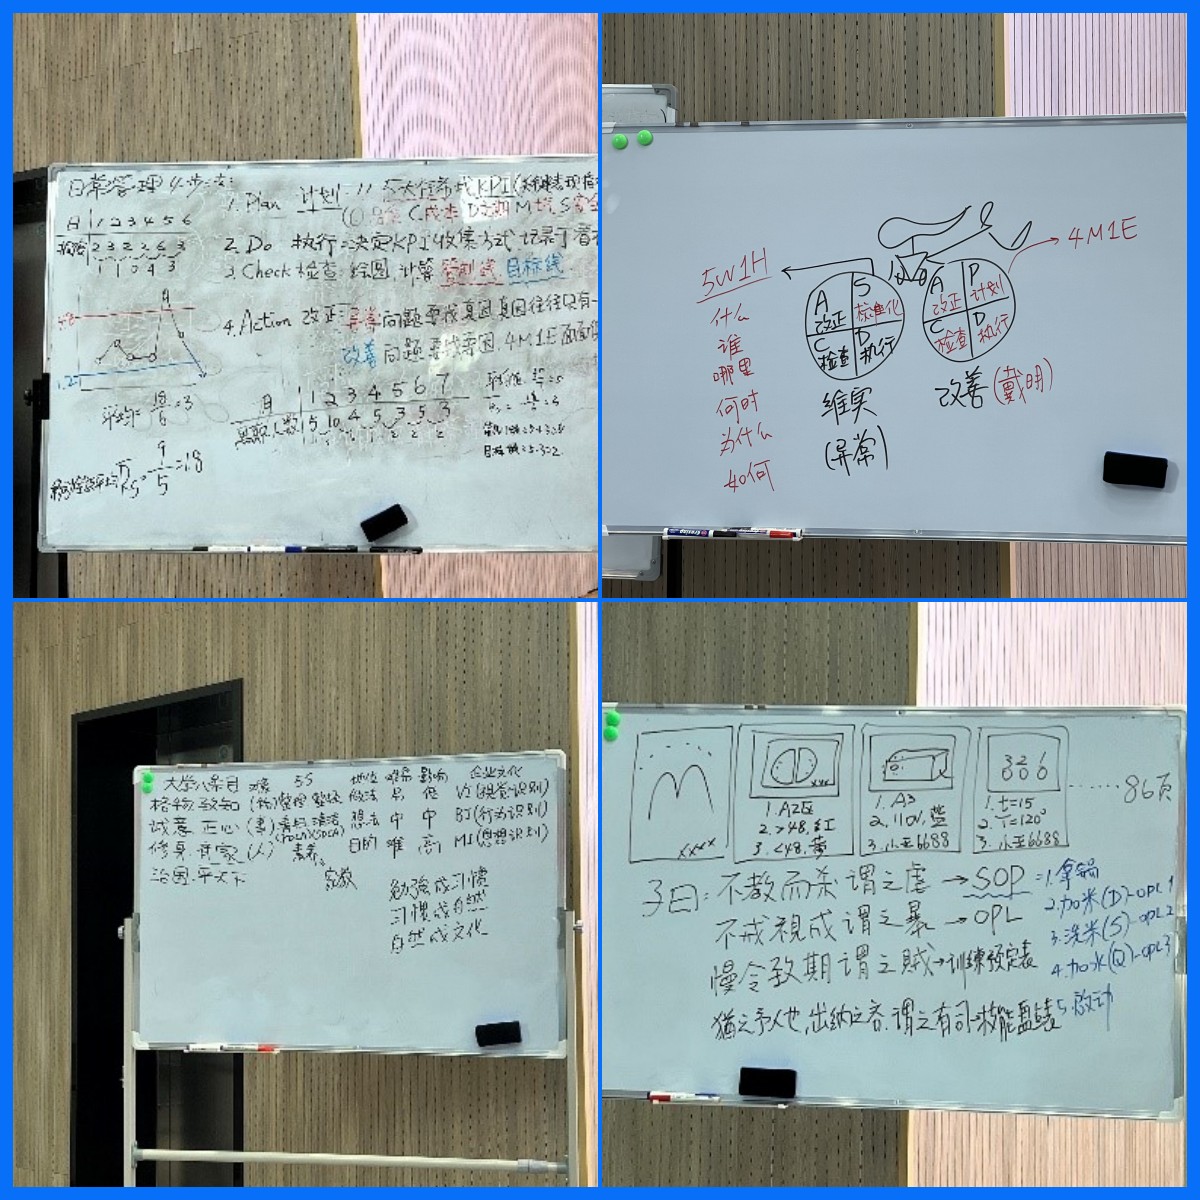 日常管理4步法:
日 1 2 3 4 5 6
2 3 2 2 6 3
1 1 0 4 3
平均= 18/6 =3
9/5 =1.8
1. Plan 计划
C成本 D交期 M士气 S安全
2. Do 执行:决定KPI收集方式
3. Check 检查:绘图,计算 管制线 目标线
4. Action 改正:异常问题要找真因,真因往往只有一
改善问题要找要因,4M1E
日 1 2 3 4 5 6 7
人数 5 10 4 5 3 5 3
5W1H
什么
谁
哪里
何时
为什么
如何
A 改正
S 标准化
C 检查
D 执行
维实
(异常)
A 改正
P 计划
C 检查
D 执行
改善(戴明)
4M1E
大学八条目 对象 5S 地位 难易 影响 企业文化
格物致知 (物)整理 整顿 做法 易 低 VI(视觉识别)
诚意 正心 (事)清扫 清洁 想法 中 中 BI(行为识别)
(PDCA)(SDCA)
修身 齐家 (人) 素养 目的 难 高 MI(思想识别)
治国 平天下
家教
勉强成习惯
习惯成自然
自然成文化
xxxx
1. A2区
2. >48,红
3. <48,黄
1. A3
2. 110V,蓝
3. 小王6688
326
000
1. t=15
2. T=120°
3. 小王6688
......86页
子曰:不教而杀谓之虐→SOP
不戒视成谓之暴→OPL
慢令致期谓之贼→训练预定表
犹之予人也,出纳之吝,谓之有司→技能盘点表
1. 拿锅
2. 加米(D)-OPL1
3. 洗米(S)-OPL2
4. 加水(Q)-OPL3
5. 启动